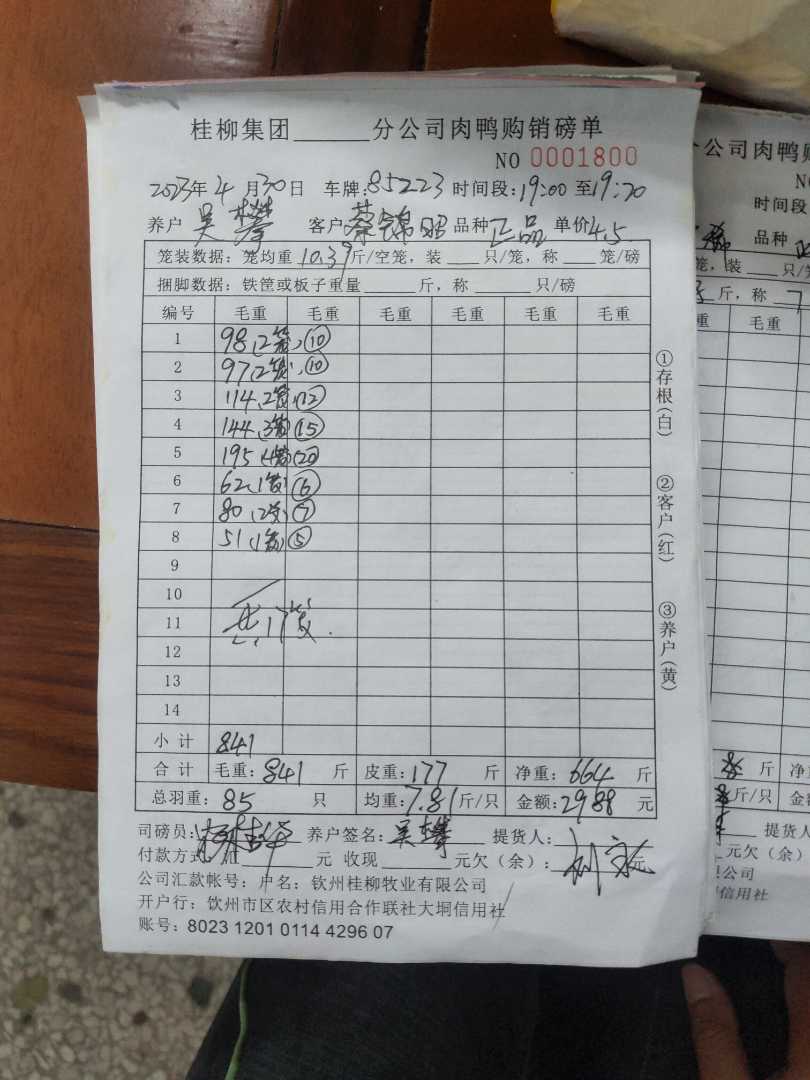 桂柳集团______分公司肉鸭购销磅单
NO 0001800
2023年4月30日 车牌:85223 时间段:19:00至19:20
养户 吴攀 客户 蔡锦昭 品种 正品 单价4.5
笼装数据：笼均重10.39斤/空笼，装___只/笼，称___笼/磅
捆脚数据：铁筐或板子重量______斤，称______只/磅
编号 毛重 毛重 毛重 毛重 毛重 毛重
1 98(2笼)⑩
2 97(2笼)⑩
3 114(2笼)⑫
4 144(3笼)⑮
5 195(4笼)⑳
6 62(1笼)⑥
7 80(2笼)⑦
8 51(1笼)⑤
9
10
11 共17笼.
12
13
14
小计 841
合计 毛重:841斤 皮重:177斤 净重:664斤
总羽重:85只 均重:7.81斤/只 金额:2988元
司磅员: 养户签名:吴攀 提货人:
付款方式 汇______元 收现______元欠（余）:______元
公司汇款帐号：户名：钦州桂柳牧业有限公司
开户行：钦州市区农村信用合作联社大垌信用社
账号：8023 1201 0114 4296 07
①存根(白)
②客户(红)
③养户(黄)
公司肉鸭购
时间段
品种
笼，装___只/
斤，称 7
毛重
斤 净
斤/只 金
提货人
元欠（余）
限公司
信用社